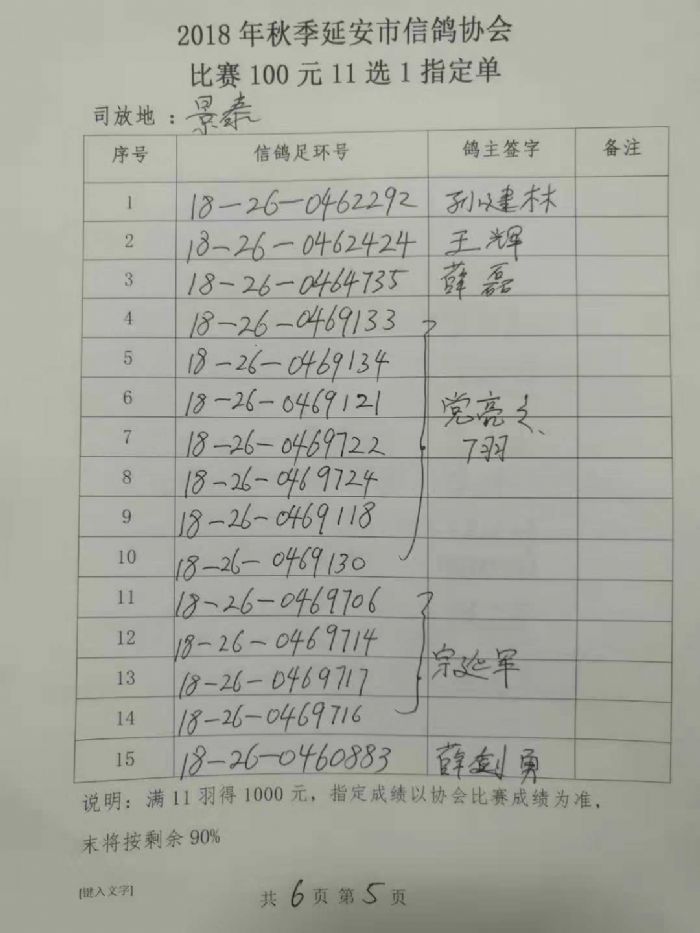 2018 年秋季延安市信鸽协会
比赛 100 元 11 选 1 指定单
司放地：景泰
序号 信鸽足环号 鸽主签字 备注
1 18-26-0462292 孙建林
2 18-26-0462424 王辉
3 18-26-0464735 薛磊
4 18-26-0469133
5 18-26-0469134
6 18-26-0469121 党亮
7 18-26-0469722 7羽
8 18-26-0469724
9 18-26-0469118
10 18-26-0469130
11 18-26-0469706
12 18-26-0469714
13 18-26-0469717 宗延军
14 18-26-0469716
15 18-26-0460883 薛剑勇
说明：满 11 羽得 1000 元，指定成绩以协会比赛成绩为准，
末将按剩余 90%
[键入文字]
共 6 页 第 5 页